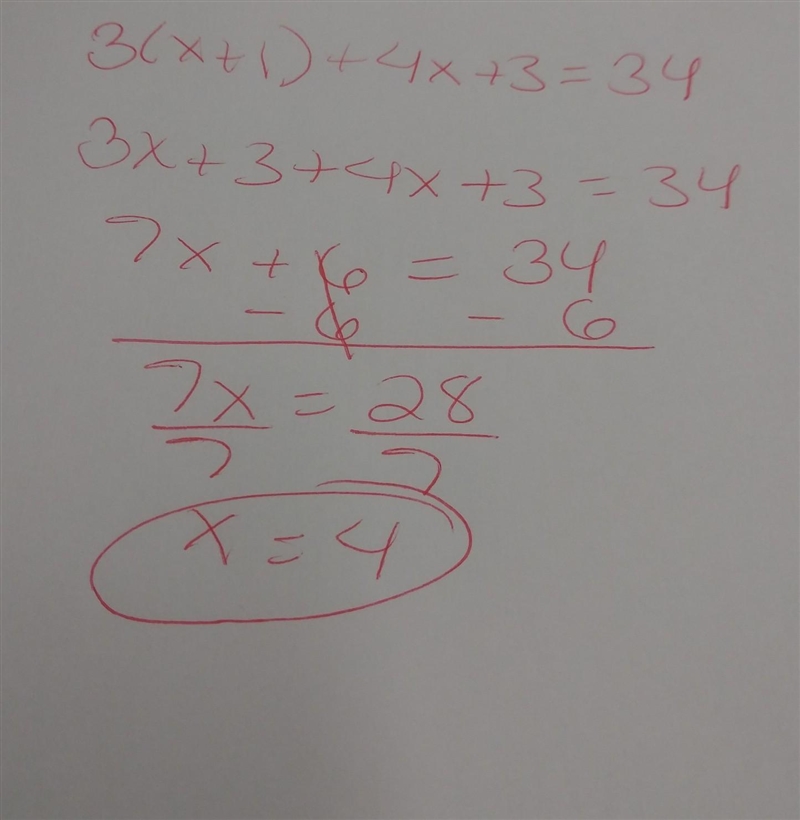 3(x+1)+4x+3=34
3x+3+4x+3=34
7x+6=34
-6 -6
7x = 28
7 7
x=4